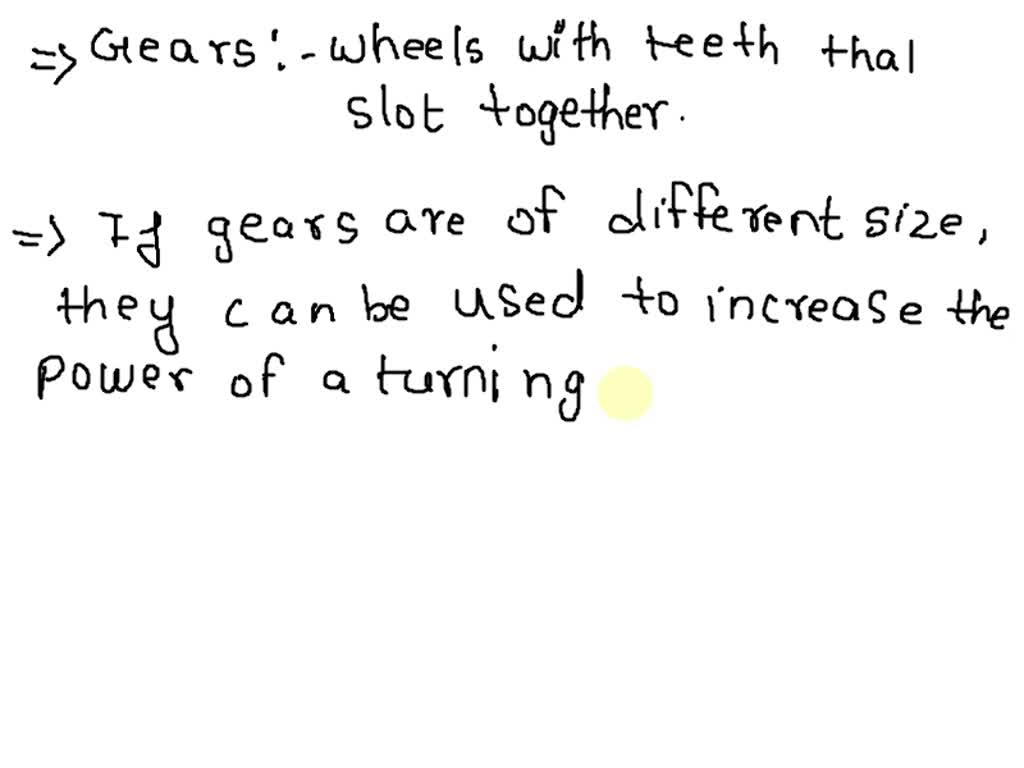 => Gears :- wheels with teeth thal
slot together.
=> If gears are of different size,
they can be used to increase the
power of a turning